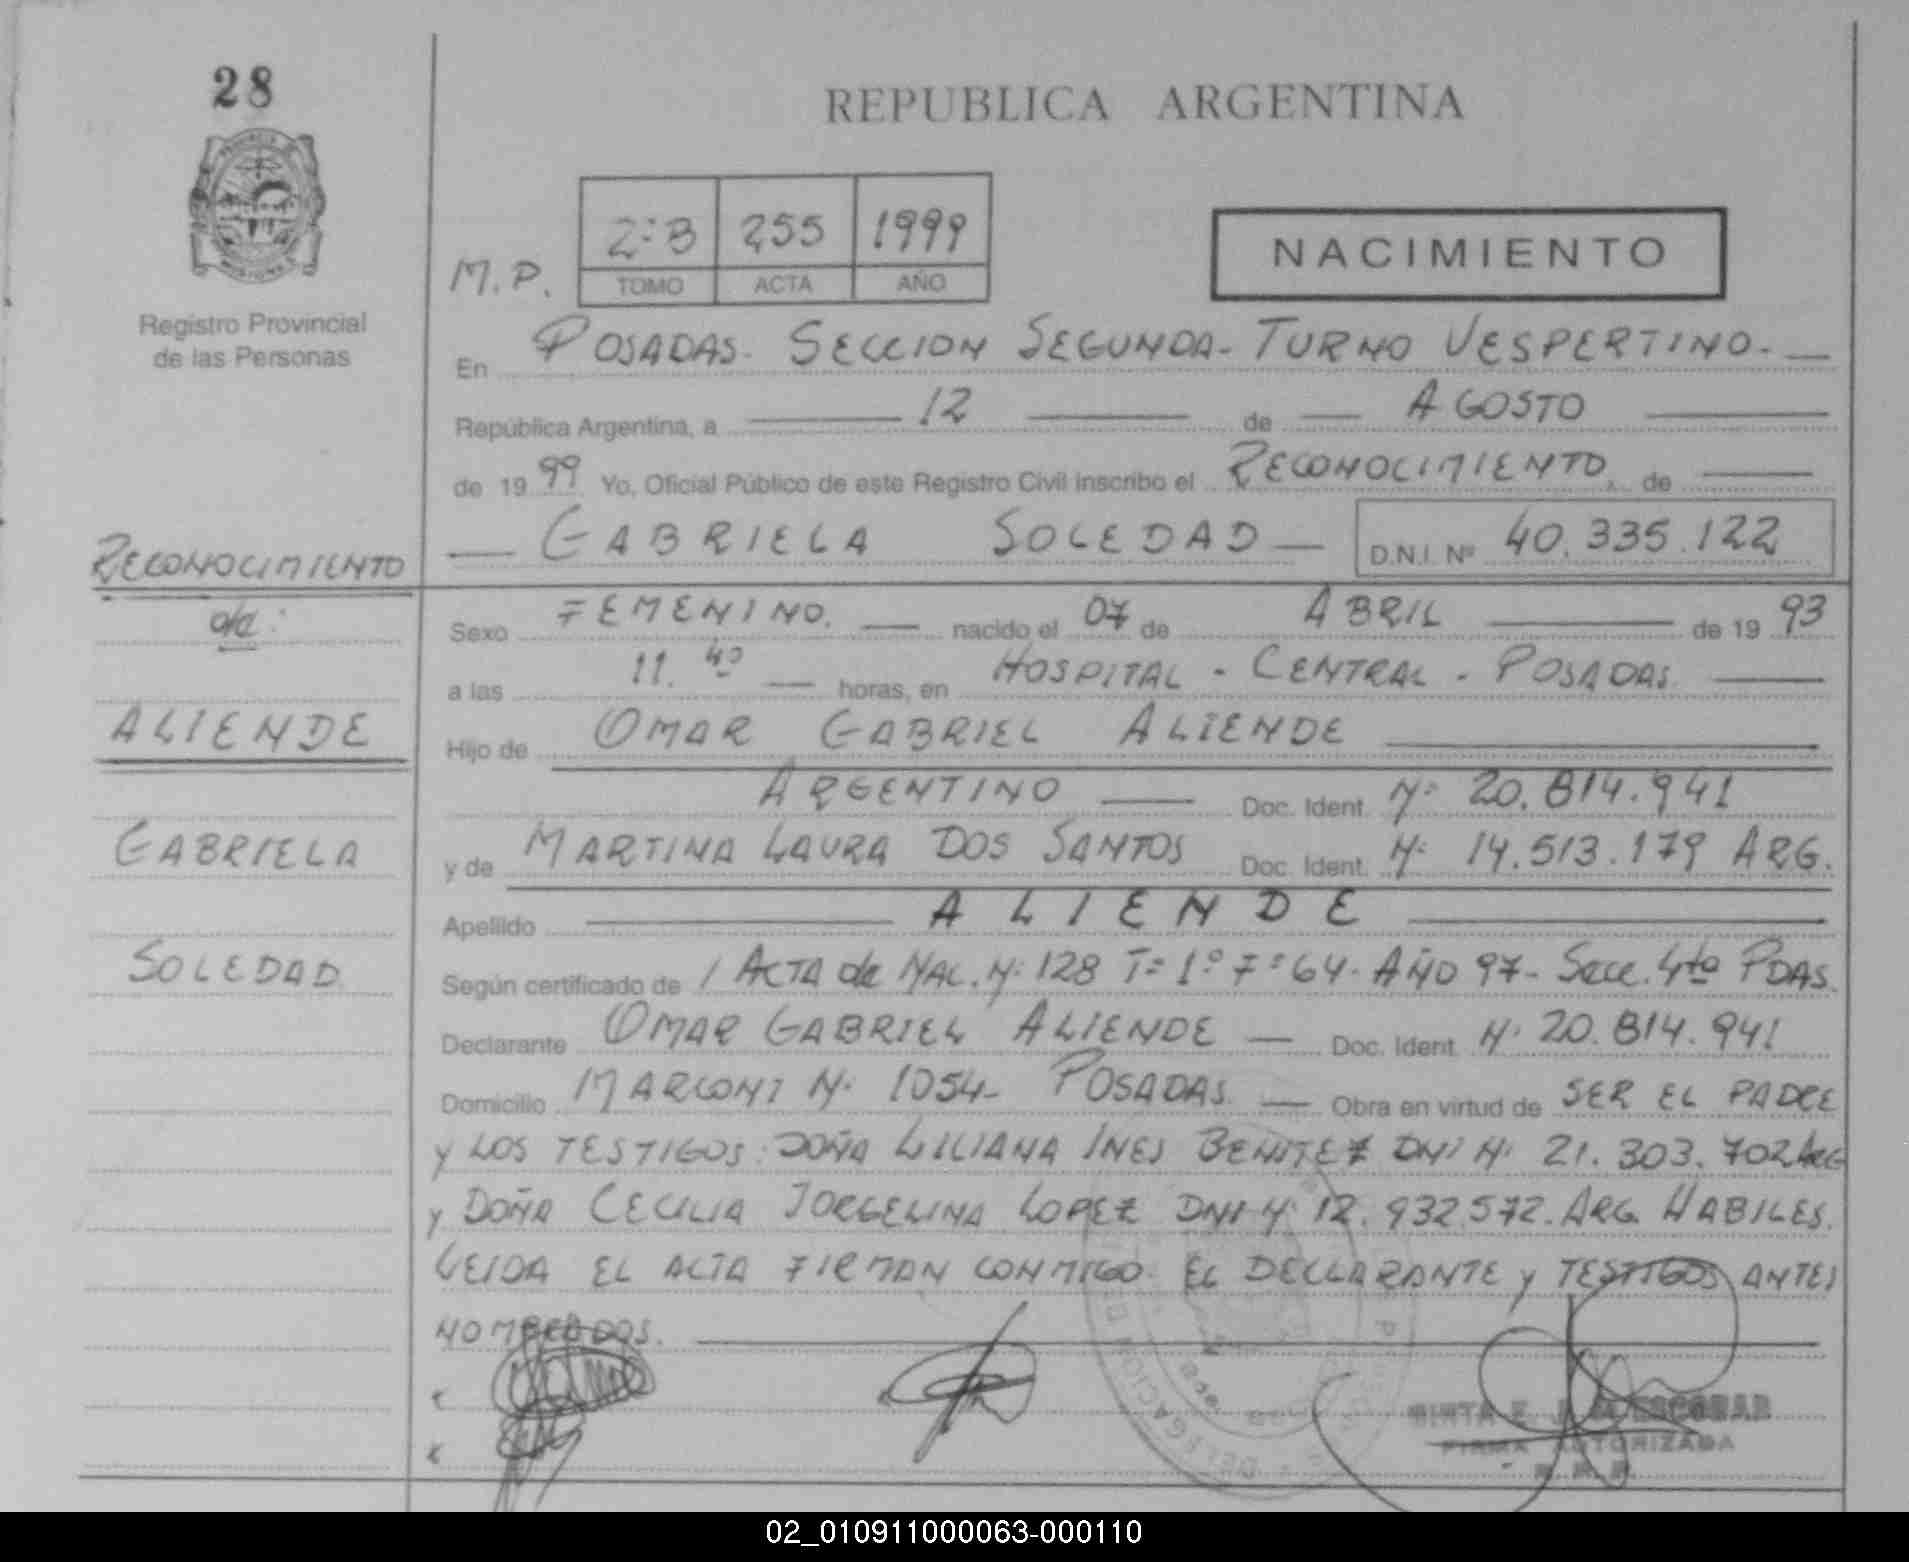 28
REPUBLICA ARGENTINA
Registro Provincial
de las Personas
M.P.
2:B 255 1999
TOMO ACTA AÑO
NACIMIENTO
En POSADAS. SECCION SEGUNDA - TURNO VESPERTINO.-
República Argentina, a 12 de AGOSTO
de 1999 Yo, Oficial Público de este Registro Civil inscribo el RECONOCIMIENTO, de
GABRIELA SOLEDAD D.N.I. Nº 40.335.122
RECONOCIMIENTO
de:
ALIENDE
GABRIELA
SOLEDAD
Sexo FEMENINO. nacido el 07 de ABRIL de 1993
a las 11.40 horas, en HOSPITAL - CENTRAL - POSADAS.
Hijo de OMAR GABRIEL ALIENDE
ARGENTINO Doc. Ident. Nº 20.814.941
y de MARTINA LAURA DOS SANTOS Doc. Ident. Nº 14.513.179 ARG.
Apellido ALIENDE
Según certificado de 1 ACTA de NAC. Nº 128 Tº 1º Fº 64. AÑO 97- Secc. 4ta PDAS.
Declarante OMAR GABRIEL ALIENDE Doc. Ident. Nº 20.814.941
Domicilio MARCONI Nº 1054- POSADAS. Obra en virtud de SER EL PADRE
y LOS TESTIGOS: DOÑA LILIANA INES BENITEZ DNI Nº 21.303.702 ARG
y DOÑA CECILIA JORGELINA LOPEZ DNI Nº 12.932.572. ARG. HABILES.
LEIDA EL ACTA FIRMAN CONMIGO EL DECLARANTE y TESTIGOS ANTES
NOMBRADOS.
ESCOBAR
FIRMA AUTORIZADA
02_010911000063-000110